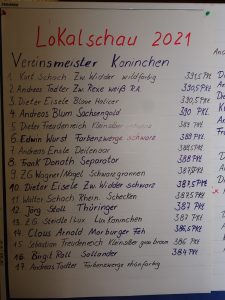 Lokalschau 2021
Vereinsmeister Koninchen
1. Kurt Schoch Zw. Widder wildfarbig 391,5 Pkt.
2. Andreas Todter Zw. Rexe weiß R.A 390,5 Pkt
3. Dieter Eisele Blave Holicer 390,5
4. Andreas Blum Sachsengold 390 Pkt
5. Dieter Freudenreich Kleinsilber 389,5 Pkt
6. Edwin Wurst Farbenzwerge schwarz 388
7. Andreas Ensle Deilenaar 388,5
8. Frank Donath Separator 388
9. ZG Wagner/Nagel Schwarzgrannen 387,5 Pkt
10. Dieter Eisele Zw Widder schwarz 387,5 Pkt.
11. Walter Schach Rhein. Schecken 387,5 Pkt.
12. Jörg Stoll Thüringer 387 Pkt.
13. ZG Steidle/Lux Lux Koninchen 387 Pkt.
14. Claus Arnold Marburger Feh 386,5 Pkt.
15. Sebastian Freudenreich Kleinsilber graubraun 386 Pkt.
16. Birgit Rall Sallander 384 Pkt.
17. Andreas Todter Farbenzwerge thüringerfarbig